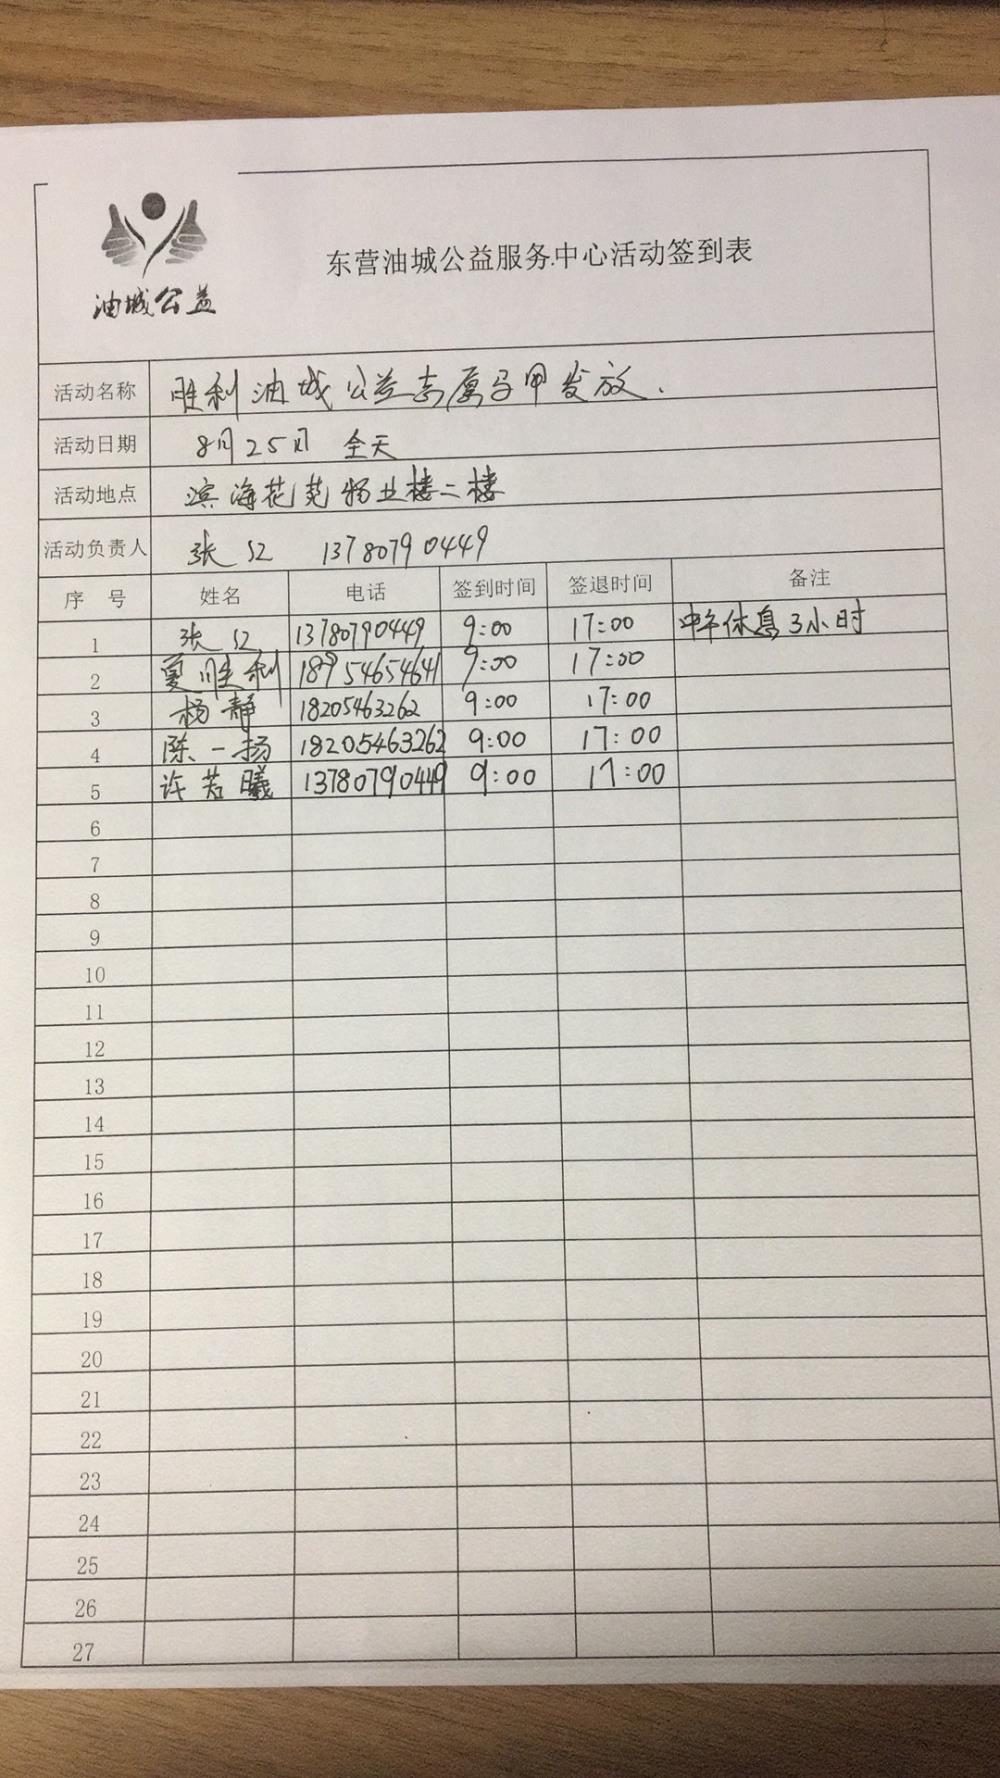 油城公益
东营油城公益服务中心活动签到表
活动名称 胜利油城公益志愿马甲发放.
活动日期 8月25日 全天
活动地点 滨海花苑物业楼二楼
活动负责人 张 13780790449
序号 姓名 电话 签到时间 签退时间 备注
1 张 13780790449 9:00 17:00 中午休息3小时
2 夏胜利 18954654641 9:00 17:00
3 杨静 18205463262 9:00 17:00
4 陈一扬 18205463262 9:00 17:00
5 许若曦 13780790449 9:00 17:00
6
7
8
9
10
11
12
13
14
15
16
17
18
19
20
21
22
23
24
25
26
27